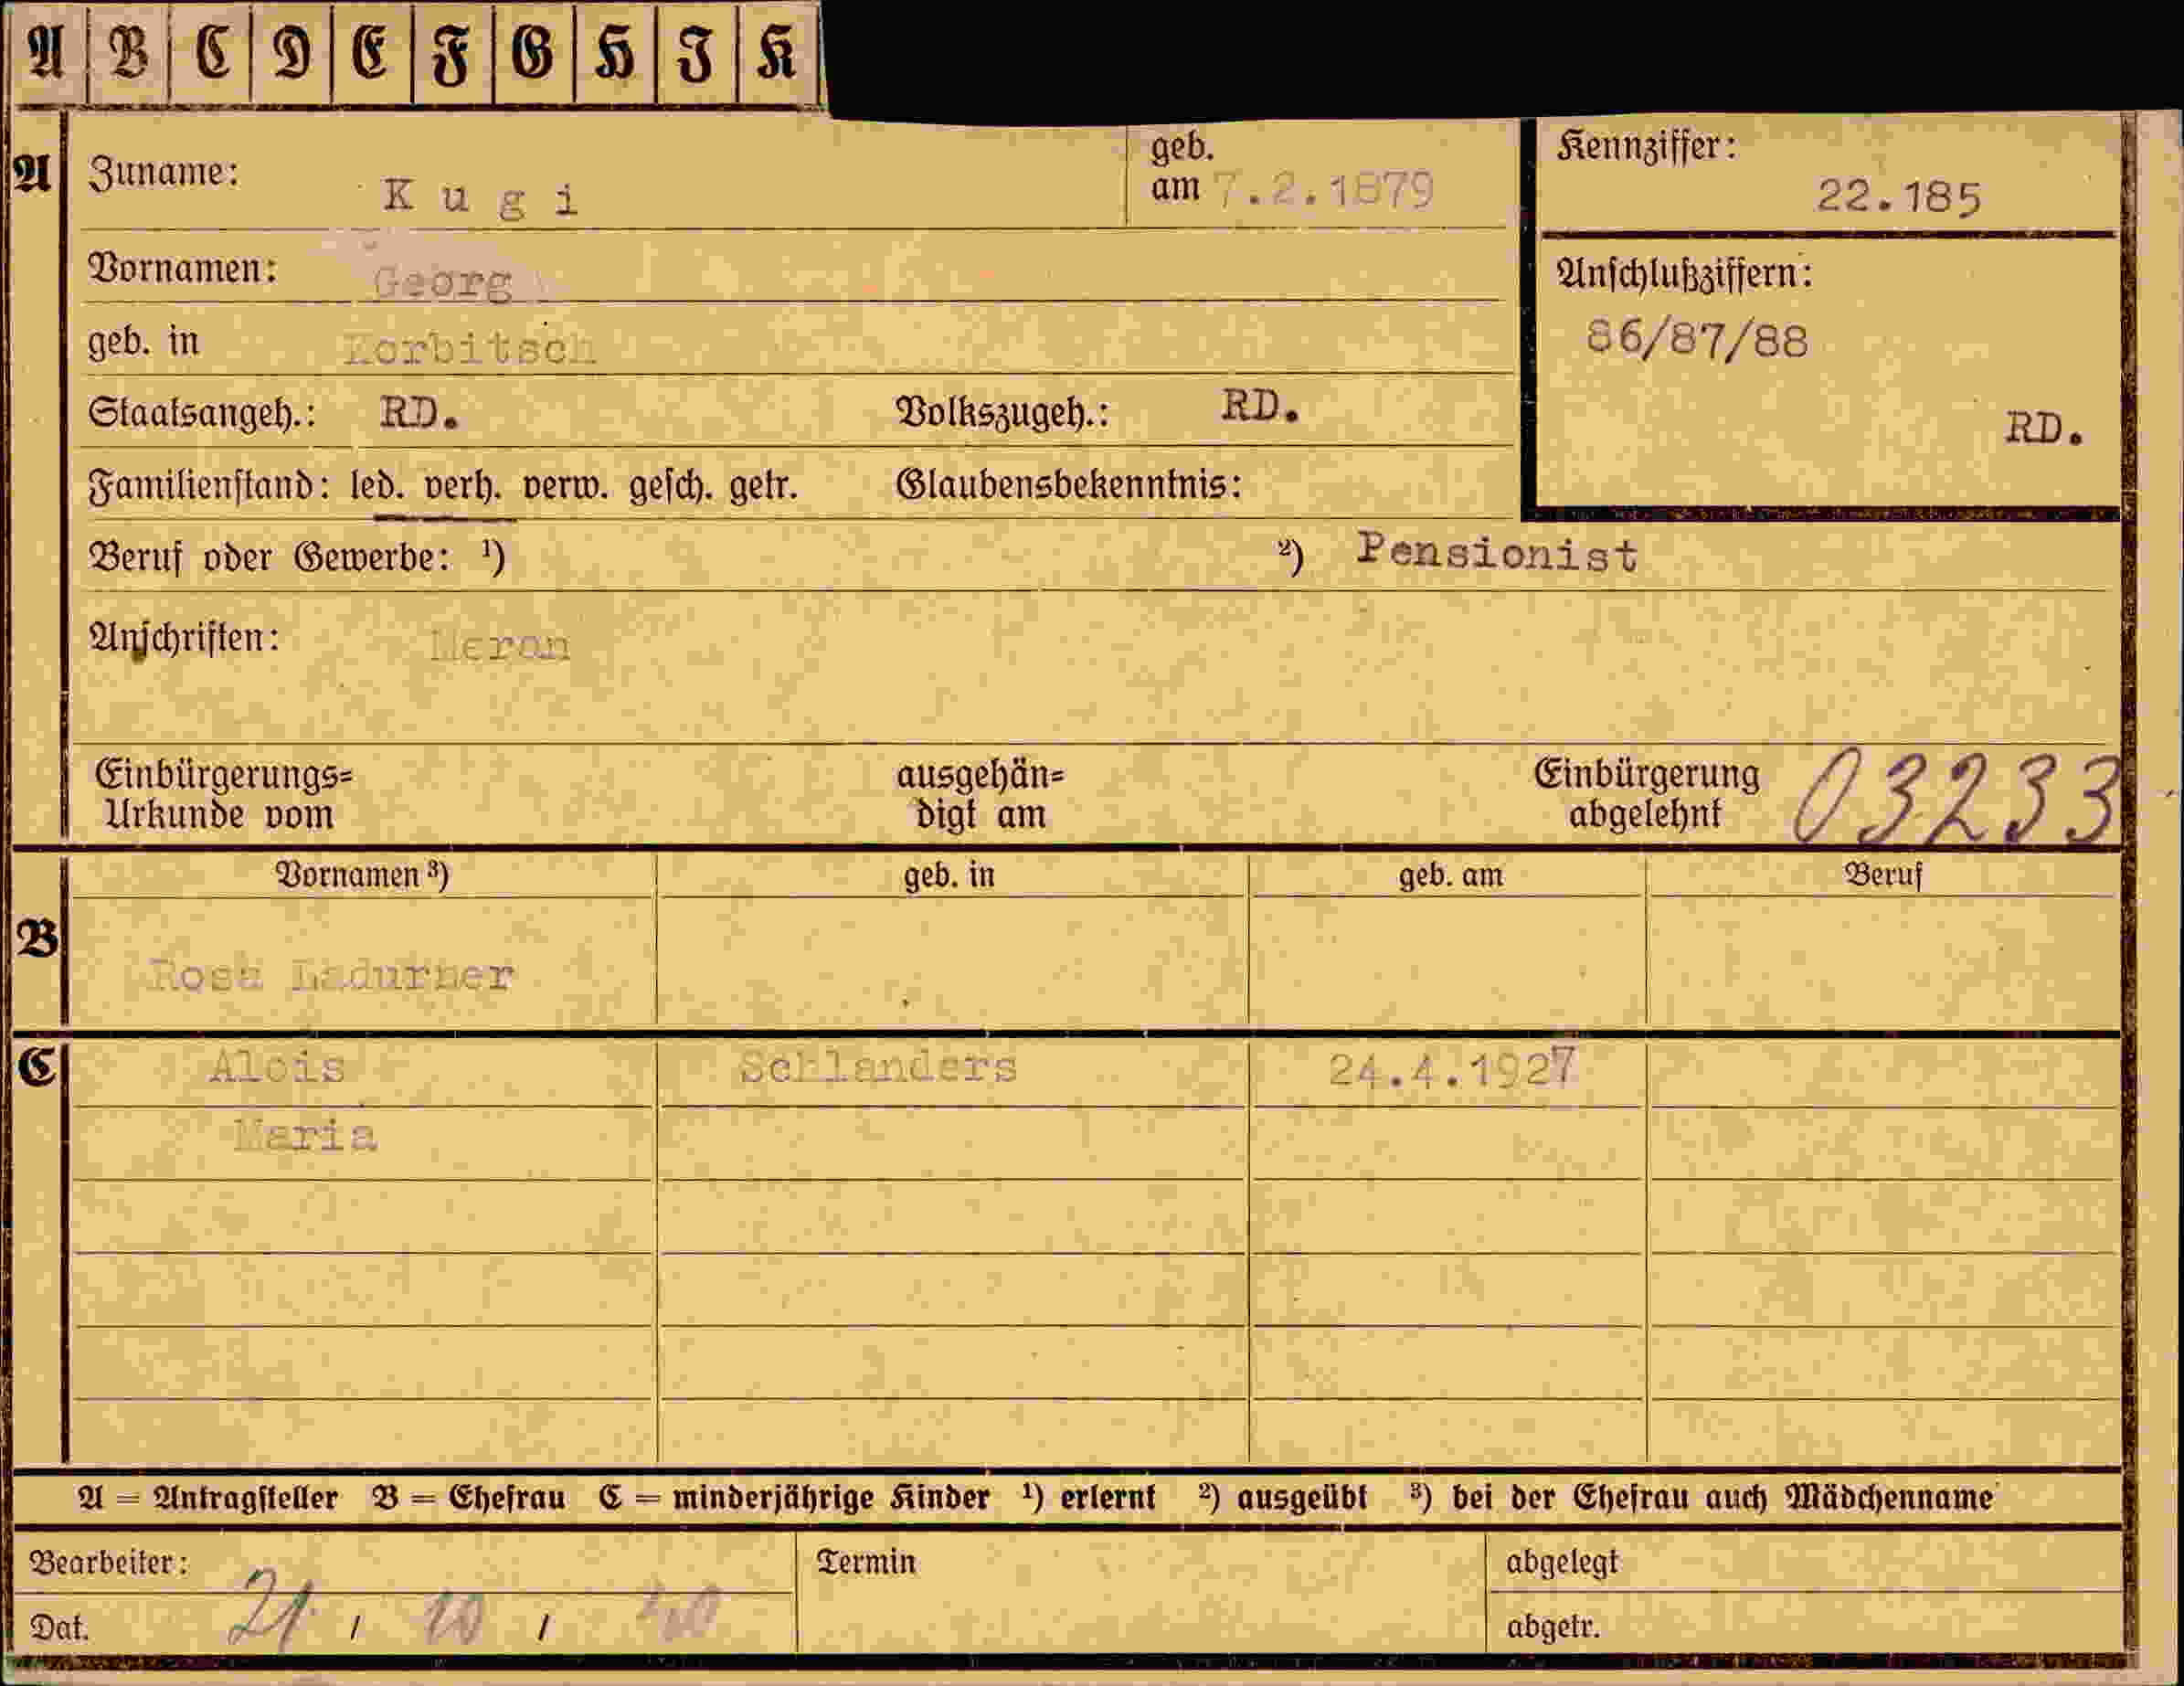 A B C D E F G H I K
A
Zuname: K u g i
geb. am 7.2.1879
Kennziffer: 22.185
Vornamen: Georg
Anschlußziffern:
86/87/88
RD.
geb. in
Staatsangeh.: RD. Volkszugeh.: RD.
Familienstand: led. verh. verw. gesch. getr. Glaubensbekenntnis:
Beruf oder Gewerbe: ¹) ²) Pensionist
Anschriften: Meran
Einbürgerungs=
Urkunde vom
ausgehän=
digt am
Einbürgerung
abgelehnt
03233
Vornamen ³) geb. in geb. am Beruf
B
Rosa Ladurner
C
Alois Schlanders 24.4.1927
Maria
A = Antragsteller B = Ehefrau C = minderjährige Kinder ¹) erlernt ²) ausgeübt ³) bei der Ehefrau auch Mädchenname
Bearbeiter: Termin abgelegt
Dat. 21 / 10 / 40 abgetr.